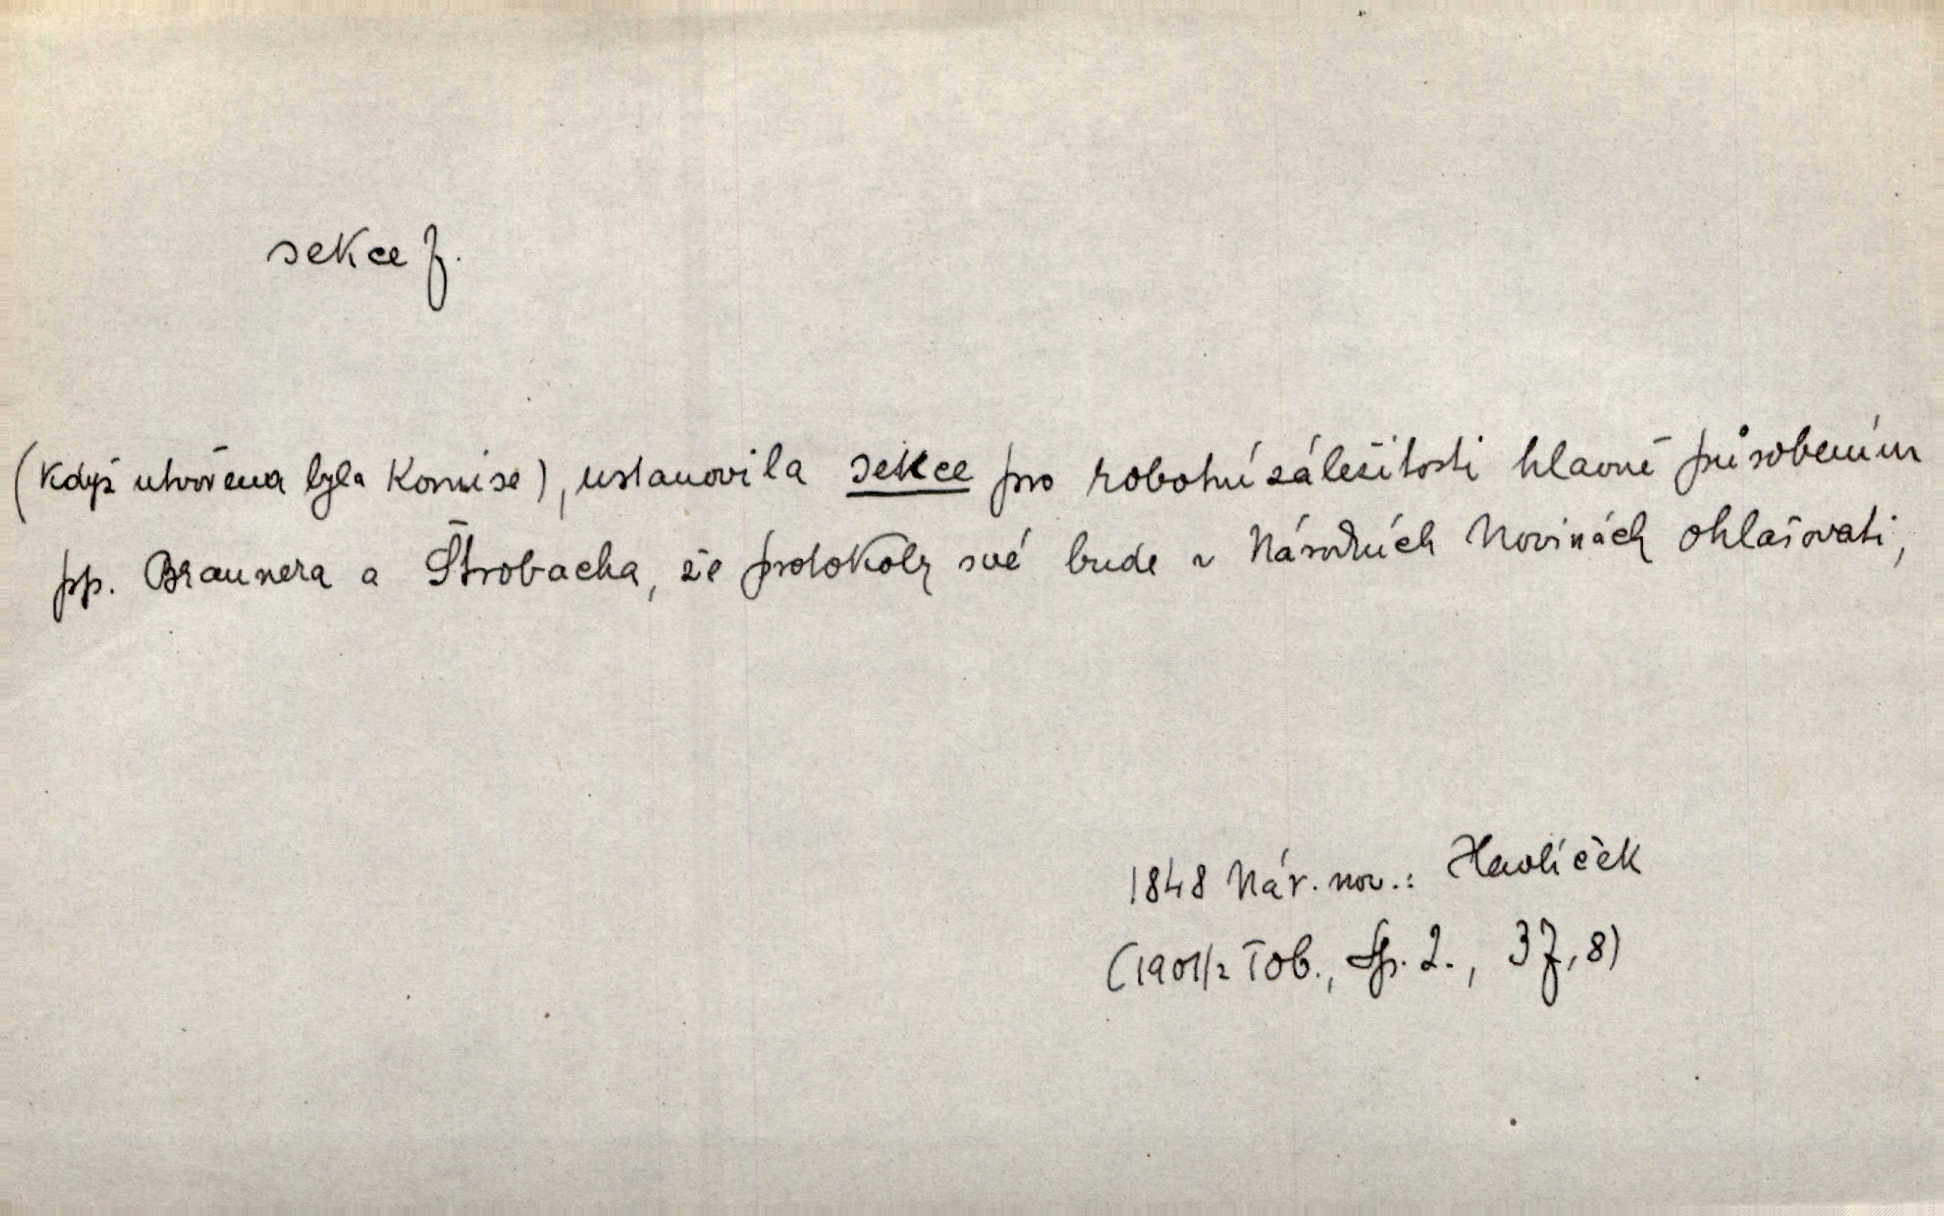 sekce f.
(když utvořena byla komise), ustanovila sekce pro robotní záležitosti hlavně působením
pp. Braunera a Štrobacha, že protokoly své bude v Národních Novinách ohlašovati,
1848 Nár. nov.: Havlíček
(1901/2 Tob., Sp. 2., 37, 8)